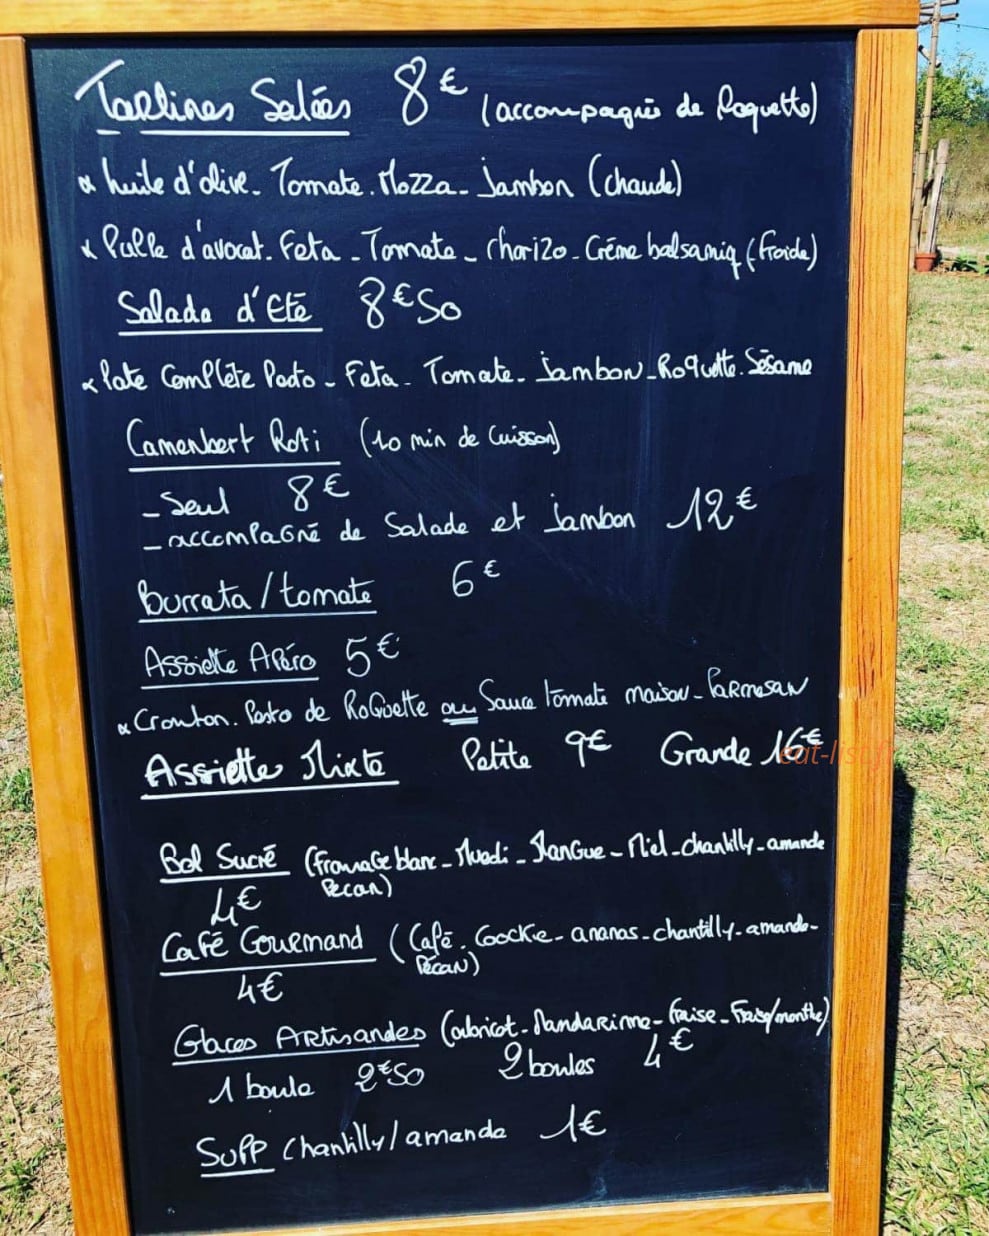 Tartines Salées 8€ (accompagnés de Roquette)
* huile d'olive - Tomate - Mozza - Jambon (chaude)
* Pulpe d'avocat - Feta - Tomate - chorizo - Crème balsamiq (froide)
Salade d'Eté 8€50
* Pate Complète Pesto - Feta - Tomate - Jambon - Roquette - Sésame
Camembert Roti (10 min de Cuisson)
- Seul 8€
- accompagné de Salade et Jambon 12€
Burrata / tomate 6€
Assiette Apéro 5€
* Crouton - Pesto de Roquette ou Sauce tomate maison - Parmesan
Assiette Mixte Petite 9€ Grande 16€
Bol Sucré (fromage blanc - Muesli - Mangue - Miel - chantilly - amande
Pecan)
4€
Café Gourmand (Café - Cookie - ananas - chantilly - amande -
Pécan)
4€
Glaces Artisandes (abricot - Mandarinne - fraise - Fraise/menthe)
1 boule 2€50 2 boules 4€
Supp Chantilly / amande 1€